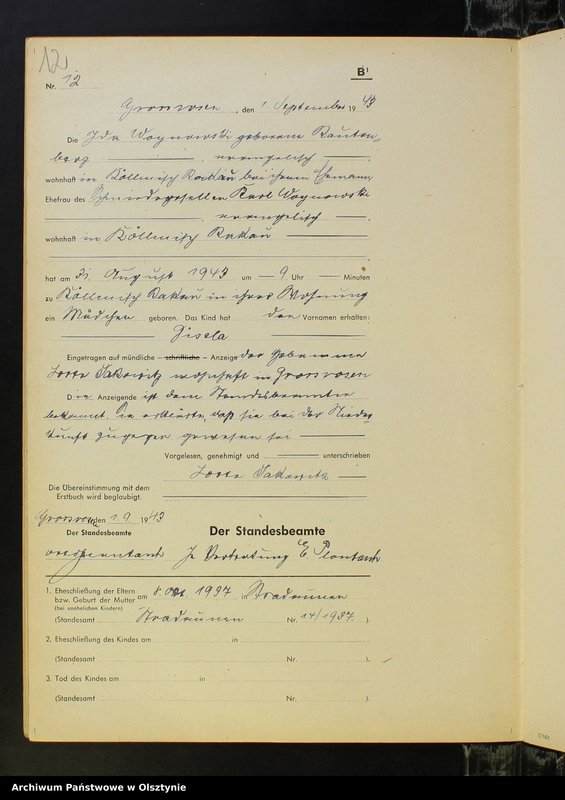 12
Nr. 12
B¹
Grosrosen, den 1. September 1943
Die Ida Woynowski geborene Rauten-
berg, evangelisch,
wohnhaft in Köllmisch Rakau bei ihrem Ehemann
Ehefrau des Schmiedegesellen Karl Woynowski
evangelisch,
wohnhaft in Köllmisch Rakau
hat am 31. August 1943 um 9 Uhr Minuten
zu Köllmisch Rakau in ihrer Wohnung
ein Mädchen geboren. Das Kind hat den Vornamen erhalten:
Gisela
Eingetragen auf mündliche – schriftliche – Anzeige der Hebamme
Lotte Sakowitz wohnhaft in Grosrosen
Die Anzeigende ist dem Standesbeamten
bekannt. Sie erklärte, daß sie bei der Nieder-
kunft zugegen gewesen sei
Vorgelesen, genehmigt und unterschrieben
Lotte Sakowitz
Die Übereinstimmung mit dem
Erstbuch wird beglaubigt.
Grosrosen den 1.9. 1943
Der Standesbeamte
Der Standesbeamte
In Vertretung E.
1. Eheschließung der Eltern
bzw. Geburt der Mutter am 8. 1937 in Stradaunen
(bei unehelichen Kindern)
(Standesamt Stradaunen Nr. 14/1937.).
2. Eheschließung des Kindes am in
(Standesamt Nr. ).
3. Tod des Kindes am in
(Standesamt Nr. ).
Archiwum Państwowe w Olsztynie